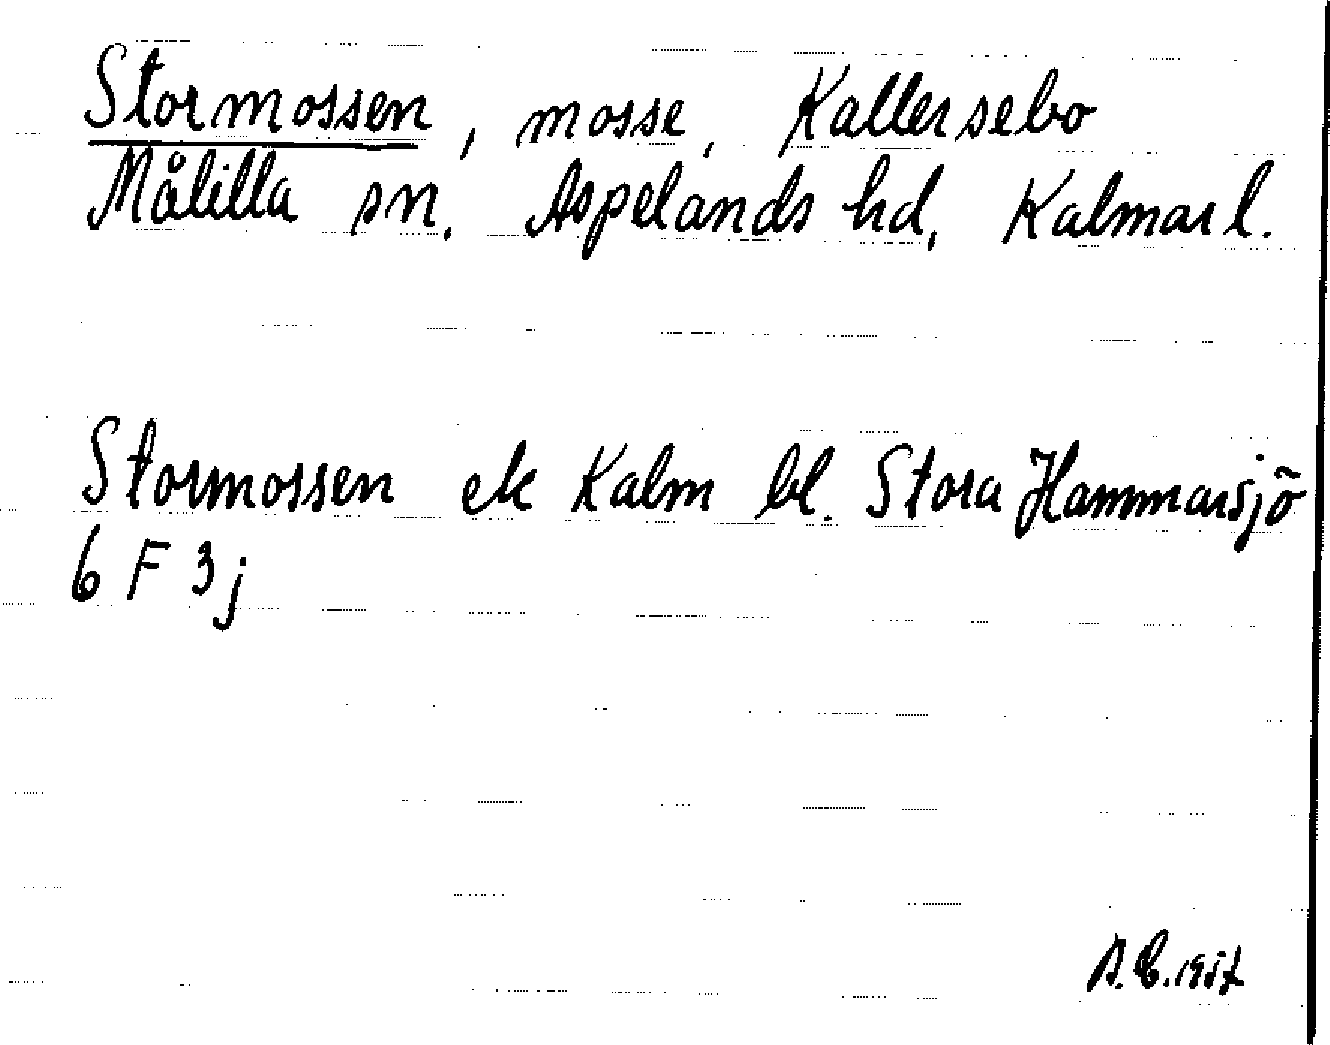 Stormossen, mosse, Kallersebo
Målilla sn. Aspelands hd, Kalmar l.
Stormossen ek Kalm bl. Stora Hammarsjö
6 F 3j